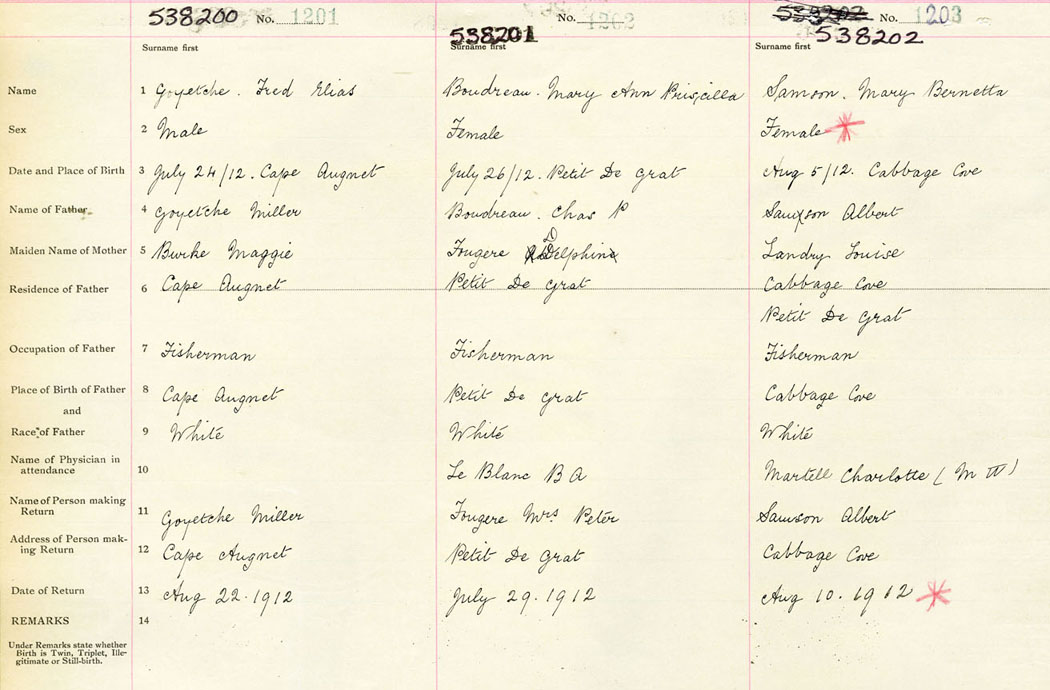 538200 No. 1201
No. 1202
538202 No. 1203
538201
538202
Surname first
Surname first
Surname first
Name 1 Goyetche. Fred Elias
Boudreau. Mary Ann Priscilla
Samson. Mary Bernetta
Sex 2 Male
Female
Female
Date and Place of Birth 3 July 24/12. Cape Augnet
July 26/12. Petit De Grat
Aug 5/12. Cabbage Cove
Name of Father 4 Goyetche Miller
Boudreau. Chas P
Samson Albert
Maiden Name of Mother 5 Burke Maggie
Fougere Delphine
Landry Louise
Residence of Father 6 Cape Augnet
Petit De Grat
Cabbage Cove
Petit De Grat
Occupation of Father 7 Fisherman
Fisherman
Fisherman
Place of Birth of Father 8 Cape Augnet
Petit De Grat
Cabbage Cove
and
Race of Father 9 White
White
White
Name of Physician in
attendance 10
Le Blanc B A
Martell Charlotte (M W)
Name of Person making
Return 11 Goyetche Miller
Fougere Mrs Peter
Samson Albert
Address of Person mak-
ing Return 12 Cape Augnet
Petit De Grat
Cabbage Cove
Date of Return 13 Aug 22. 1912
July 29. 1912
Aug 10. 1912
REMARKS 14
Under Remarks state whether
Birth is Twin, Triplet, Ille-
gitimate or Still-birth.